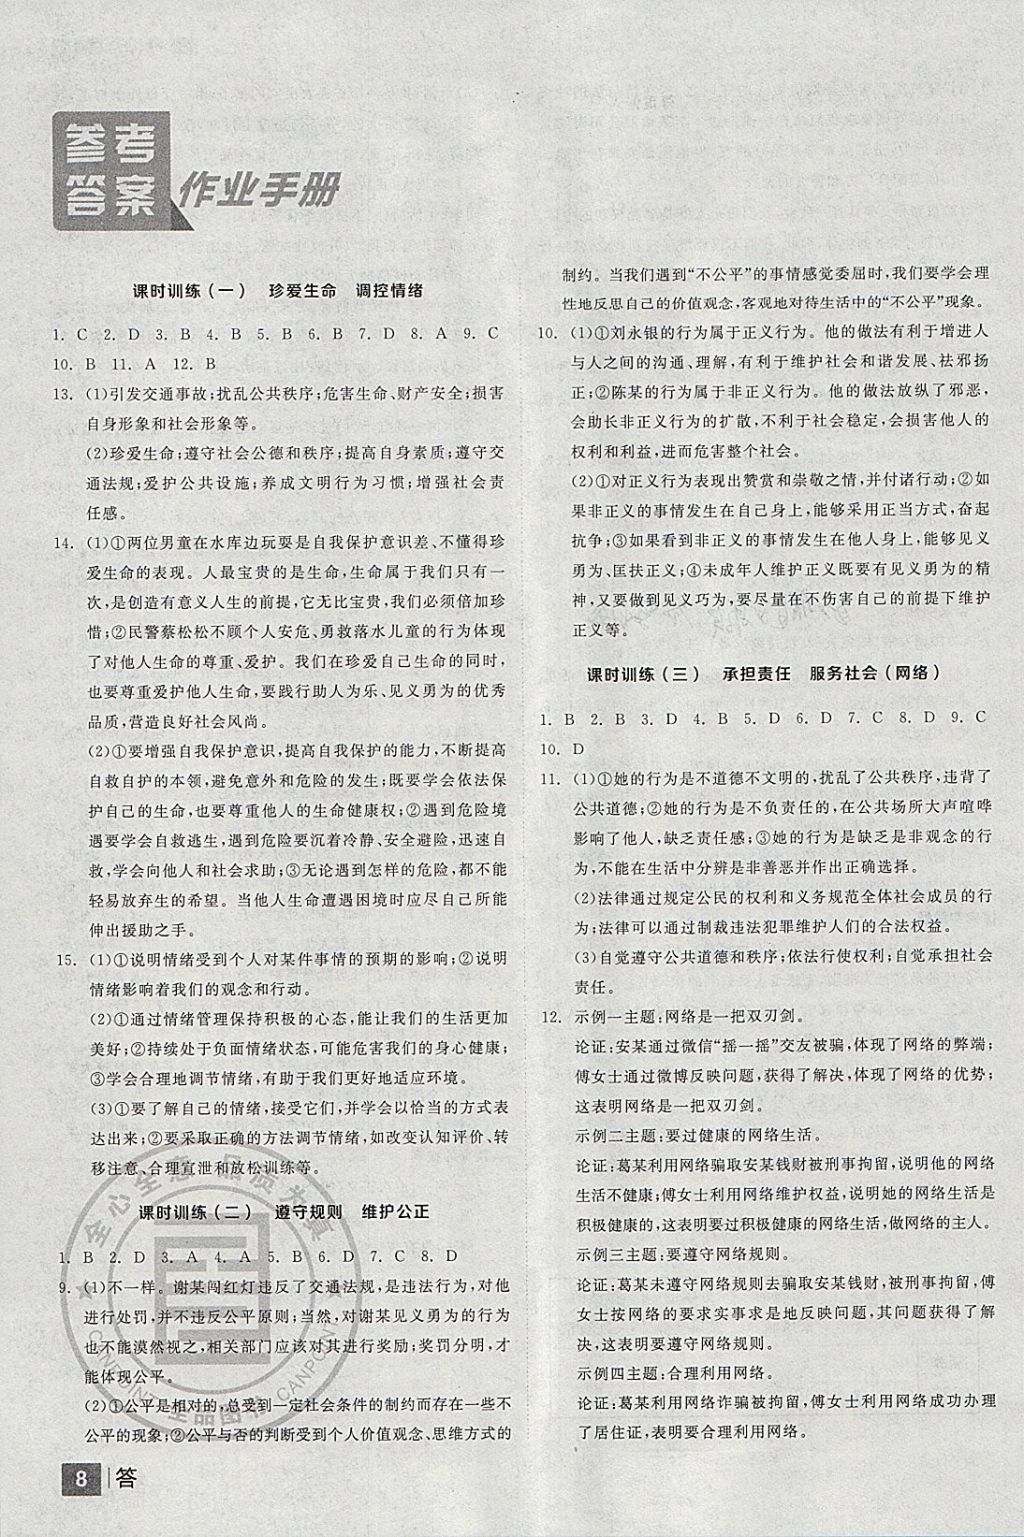 参考
答案
作业手册
课时训练(一) 珍爱生命 调控情绪
1. C 2. D 3. B 4. B 5. B 6. D 7. B 8. A 9. C
10. B 11. A 12. B
13. (1)引发交通事故;扰乱公共秩序;危害生命、财产安全;损害
自身形象和社会形象等。
(2)珍爱生命;遵守社会公德和秩序;提高自身素质;遵守交
通法规;爱护公共设施;养成文明行为习惯;增强社会责
任感。
14. (1)①两位男童在水库边玩耍是自我保护意识差、不懂得珍
爱生命的表现。人最宝贵的是生命,生命属于我们只有一
次,是创造有意义人生的前提,它无比宝贵,我们必须倍加珍
惜;②民警蔡松松不顾个人安危、勇救落水儿童的行为体现
了对他人生命的尊重、爱护。我们在珍爱自己生命的同时,
也要尊重并爱护他人生命,要践行助人为乐、见义勇为的优秀
品质,营造良好社会风尚。
(2)①要增强自我保护意识,提高自我保护的能力,掌握自
救自护的本领,避免意外和危险的发生;既要学会依法保
护自己的生命,也要尊重他人的生命健康权;②遇到危险境
遇要学会自救逃生,遇到危险要沉着冷静、安全避险,迅速自
救,学会向他人和社会求助;③无论遇到怎样的危险,都不能
轻易放弃生的希望。当他人生命遭遇困境时应尽自己所能
伸出援助之手。
15. (1)①说明情绪受到个人对某件事情的预期的影响;②说明
情绪影响着我们的观念和行动。
(2)①通过情绪管理保持积极的心态,能让我们的生活更加
美好;②持续处于负面情绪状态,可能危害我们的身心健康;
③学会合理地调节情绪,有助于我们更好地适应环境。
(3)①要了解自己的情绪,接受它们,并学会以恰当的方式表
达出来;②要采取正确的方法调节情绪,如改变认知评价、转
移注意、合理宣泄和放松训练等。
课时训练(二) 遵守规则 维护公正
1. B 2. D 3. A 4. A 5. B 6. D 7. C 8. D
9. (1)不一样。谢某闯红灯违反了交通法规,是违法行为,对他
进行处罚,并不违反公平原则;当然,对谢某见义勇为的行为
也不能漠然视之,相关部门应该对其进行奖励;奖罚分明,才
能体现公平。
(2)①公平是相对的,总受到一定社会条件的制约而存在一些不
公平的现象;②公平与否的判断受到个人价值观念、思维方式的
制约。当我们遇到“不公平”的事情感觉委屈时,我们要学会理
性地反思自己的价值观念,客观地对待生活中的“不公平”现象。
10. (1)①刘永银的行为属于正义行为。他的做法有利于增进人
与人之间的沟通、理解,有利于维护社会和谐发展、祛邪扬
正;②陈某的行为属于非正义行为。他的做法放纵了邪恶,
会助长非正义行为的扩散,不利于社会稳定,会损害他人的
权利和利益,进而危害整个社会。
(2)①对正义行为表现出赞赏和崇敬之情,并付诸行动;②如
果非正义的事情发生在自己身上,能够采用正当方式,奋起
抗争;③如果看到非正义的事情发生在他人身上,能够见义
勇为、匡扶正义;④未成年人维护正义既要有见义勇为的精
神,又要做到见义巧为,要尽量在不伤害自己的前提下维护
正义等。
课时训练(三) 承担责任 服务社会(网络)
1. B 2. B 3. D 4. B 5. D 6. D 7. C 8. D 9. C
10. D
11. (1)①她的行为是不道德不文明的,扰乱了公共秩序,违背了
公共道德;②她的行为是不负责任的,在公共场所大声喧哗
影响了他人,缺乏责任感;③她的行为是缺乏是非观念的行
为,不能在生活中分辨是非善恶并作出正确选择。
(2)法律通过规定公民的权利和义务规范全体社会成员的行
为;法律可以通过制裁违法犯罪维护人们的合法权益。
(3)自觉遵守公共道德和秩序;依法行使权利;自觉承担社会
责任。
12. 示例一主题:网络是一把双刃剑。
论证:安某通过微信“摇一摇”交友被骗,体现了网络的弊端;
傅女士通过微博反映问题,获得了解决,体现了网络的优势;
这表明网络是一把双刃剑。
示例二主题:要过健康的网络生活。
论证:葛某利用网络骗取安某钱财被刑事拘留,说明他的网络
生活不健康;傅女士利用网络维护权益,说明她的网络生活是
积极健康的;这表明我们要过积极健康的网络生活,做网络的主人。
示例三主题:要遵守网络规则。
论证:葛某未遵守网络规则去骗取安某钱财,被刑事拘留,傅
女士按网络的要求实事求是地反映问题,其问题获得了解
决,这表明要遵守网络规则。
示例四主题:合理利用网络。
论证:葛某利用网络诈骗被拘留,傅女士利用网络成功办理
了居住证,表明要合理利用网络。
全心全意 品质为真
CANPOINT 全品图书 CANPOINT
8 答